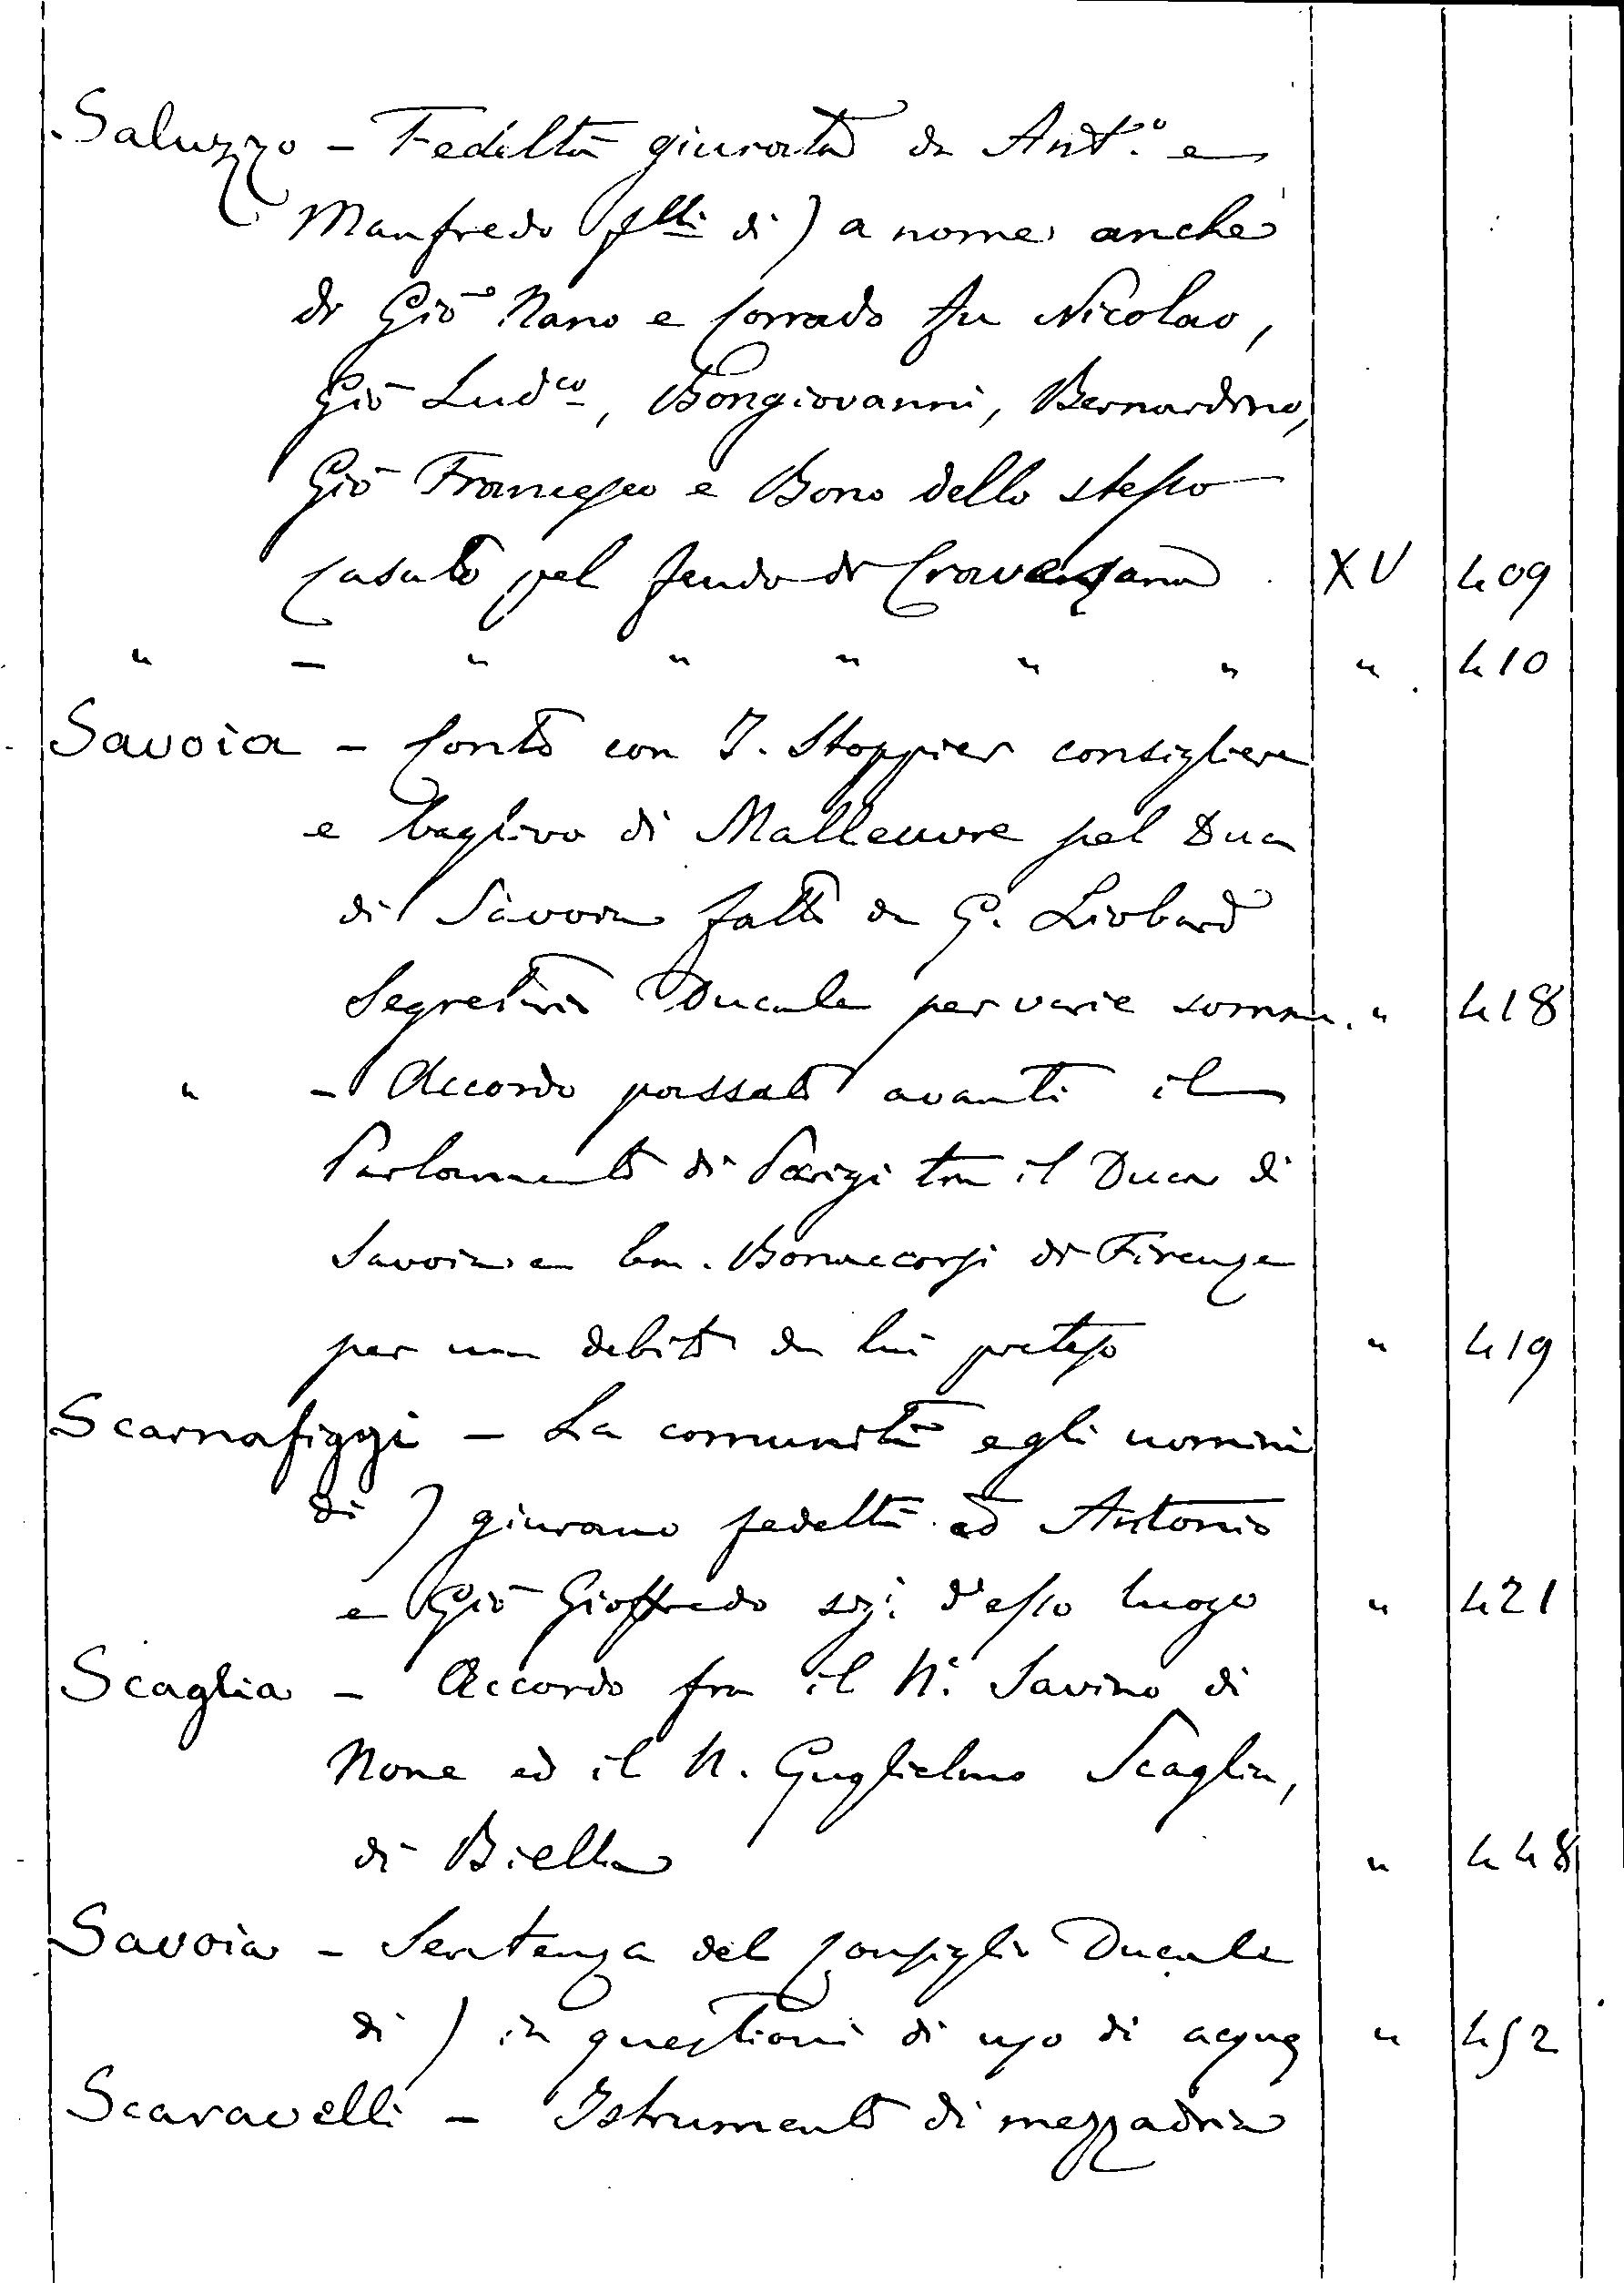 Saluzzo - Fedeltà giurata da Ant.º e
Manfredo f.lli di ) a nome anche
di Giō Nano e Corrado fu Nicolao,
Giō Lud.co, Bongiovanni, Bernardino,
Giō Francesco e Bono dello stesso
casato pel feudo di Cravanzana . XV 409
" - " " " " " " 410
Savoia - Conto con J. Stoppier consigliere
e baglivo di pel Duca
di Savoia fatto da G. Liobard
Segretario Ducale per varie somme. " 418
" - Accordo passato avanti il
Parlamento di Parigi tra il Duca di
Savoia e Bonaccorsi di Firenze
per un debito da lui preteso " 419
Scarnafiggi - La comunità e gli uomini
di ) giurano fedeltà ad Antonio
e Giō Gioffredo sig.i d'esso luogo " 421
Scaglia - Accordo fra il N. Savino di
None ed il N. Guglielmo Scaglia,
di Biella " 448
Savoia - Sentenza del Consiglio Ducale
di ) in questioni di uso di acqua " 452
Scaravelli - Istrumento di mezzadria